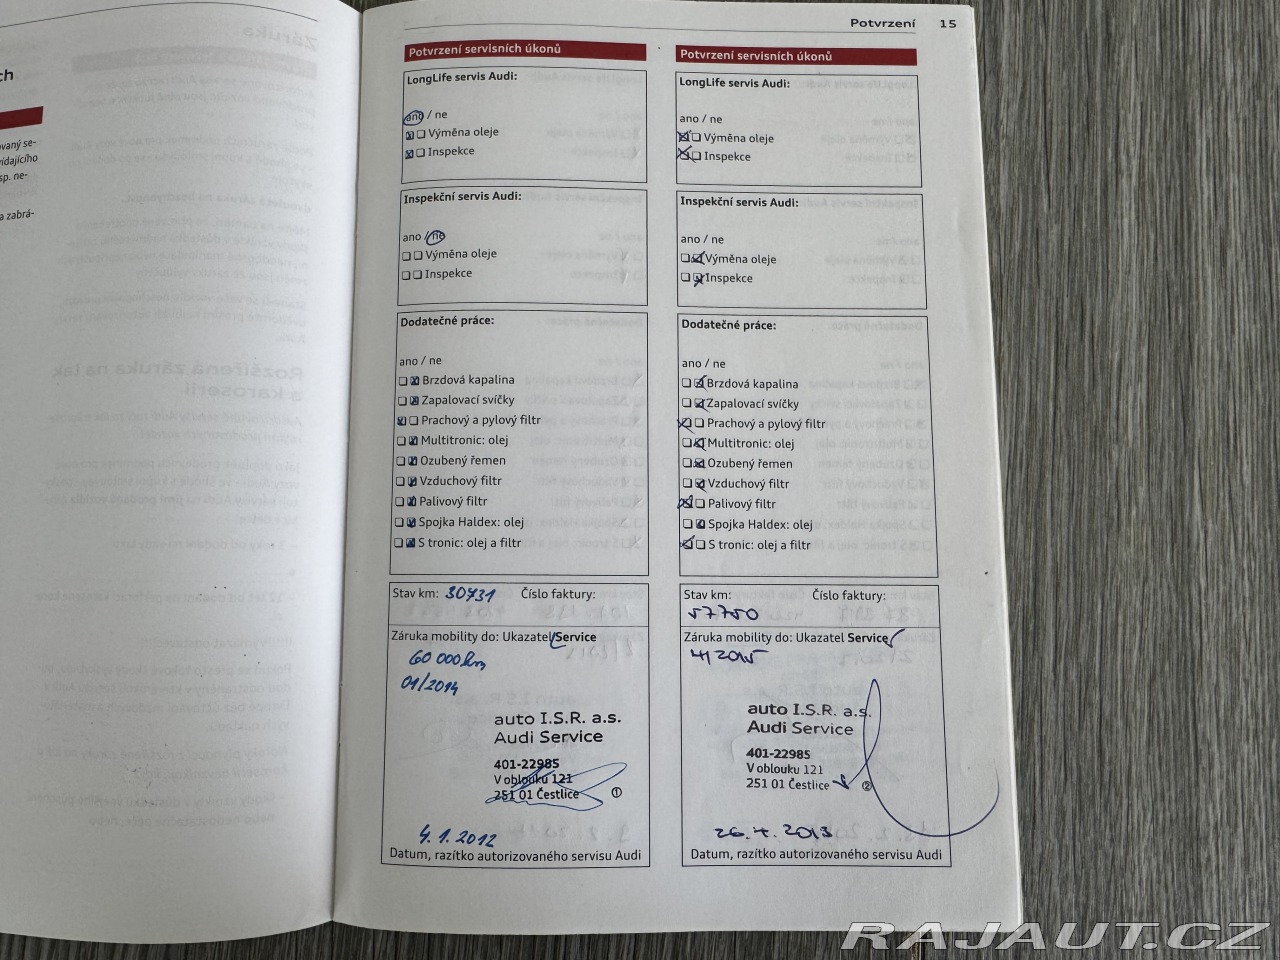 Potvrzení 15
ch
ovaný se-
vídajícího
sp. ne-
a zabrá-
Potvrzení servisních úkonů
LongLife servis Audi:
ano / ne
Výměna oleje
Inspekce
Inspekční servis Audi:
ano / ne
Výměna oleje
Inspekce
Dodatečné práce:
ano / ne
Brzdová kapalina
Zapalovací svíčky
Prachový a pylový filtr
Multitronic: olej
Ozubený řemen
Vzduchový filtr
Palivový filtr
Spojka Haldex: olej
S tronic: olej a filtr
Stav km: 30731 Číslo faktury:
Záruka mobility do: Ukazatel Service
60 000 km
01/2014
auto I.S.R. a.s.
Audi Service
401-22985
V oblouku 121
251 01 Čestlice ①
4.1.2012
Datum, razítko autorizovaného servisu Audi
Potvrzení servisních úkonů
LongLife servis Audi:
ano / ne
Výměna oleje
Inspekce
Inspekční servis Audi:
ano / ne
Výměna oleje
Inspekce
Dodatečné práce:
ano / ne
Brzdová kapalina
Zapalovací svíčky
Prachový a pylový filtr
Multitronic: olej
Ozubený řemen
Vzduchový filtr
Palivový filtr
Spojka Haldex: olej
S tronic: olej a filtr
Stav km: Číslo faktury:
57750
Záruka mobility do: Ukazatel Service
4/2015
auto I.S.R. a.s.
Audi Service
401-22985
V oblouku 121
251 01 Čestlice ②
26.4.2013
Datum, razítko autorizovaného servisu Audi
RAJAUT.CZ